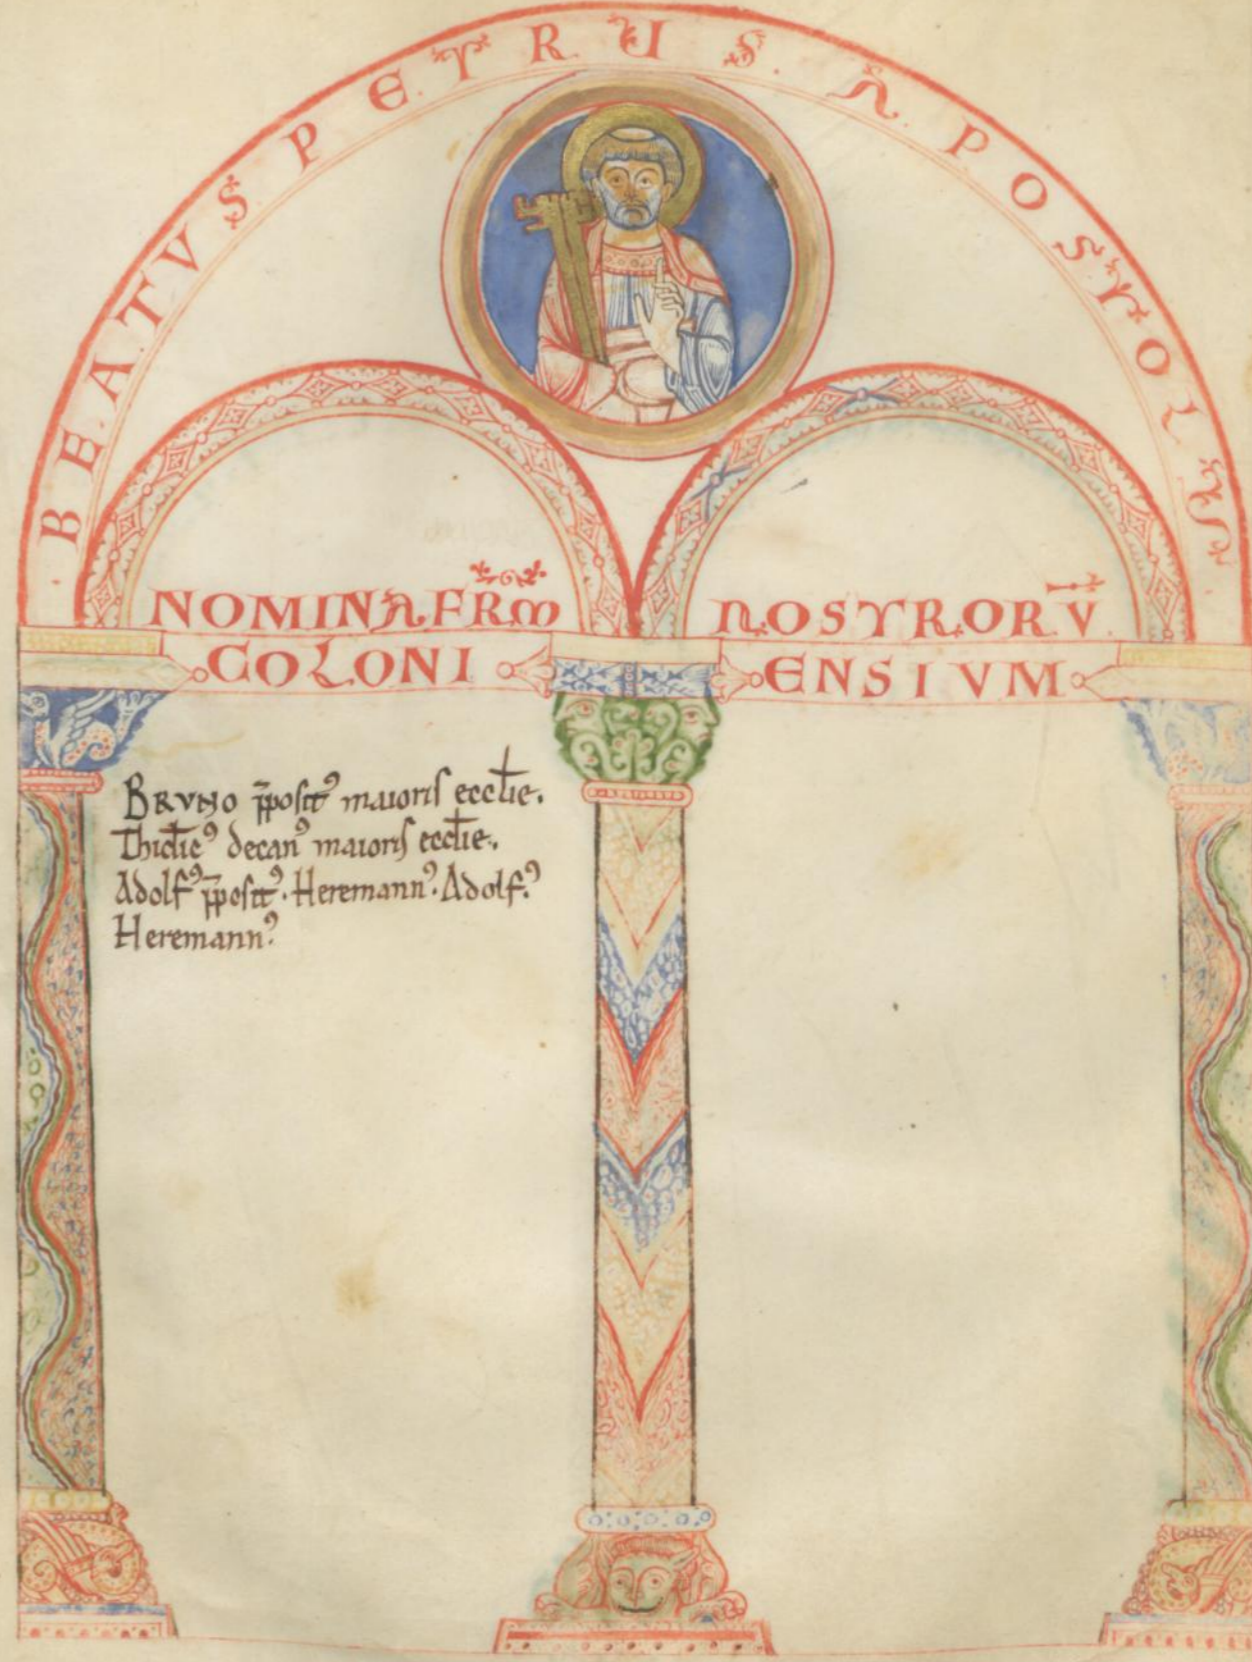 BEATVS PETRUS APOSTOLUS
NOMINA FRM̄ NOSTRORV̄
COLONIENSIVM
BRVNO p̄positꝰ maioris eccl̄ie.
Thietic̄ꝰ decanꝰ maioris eccl̄ie.
Adolfꝰ p̄positꝰ. Heremannꝰ. Adolfꝰ.
Heremannꝰ.